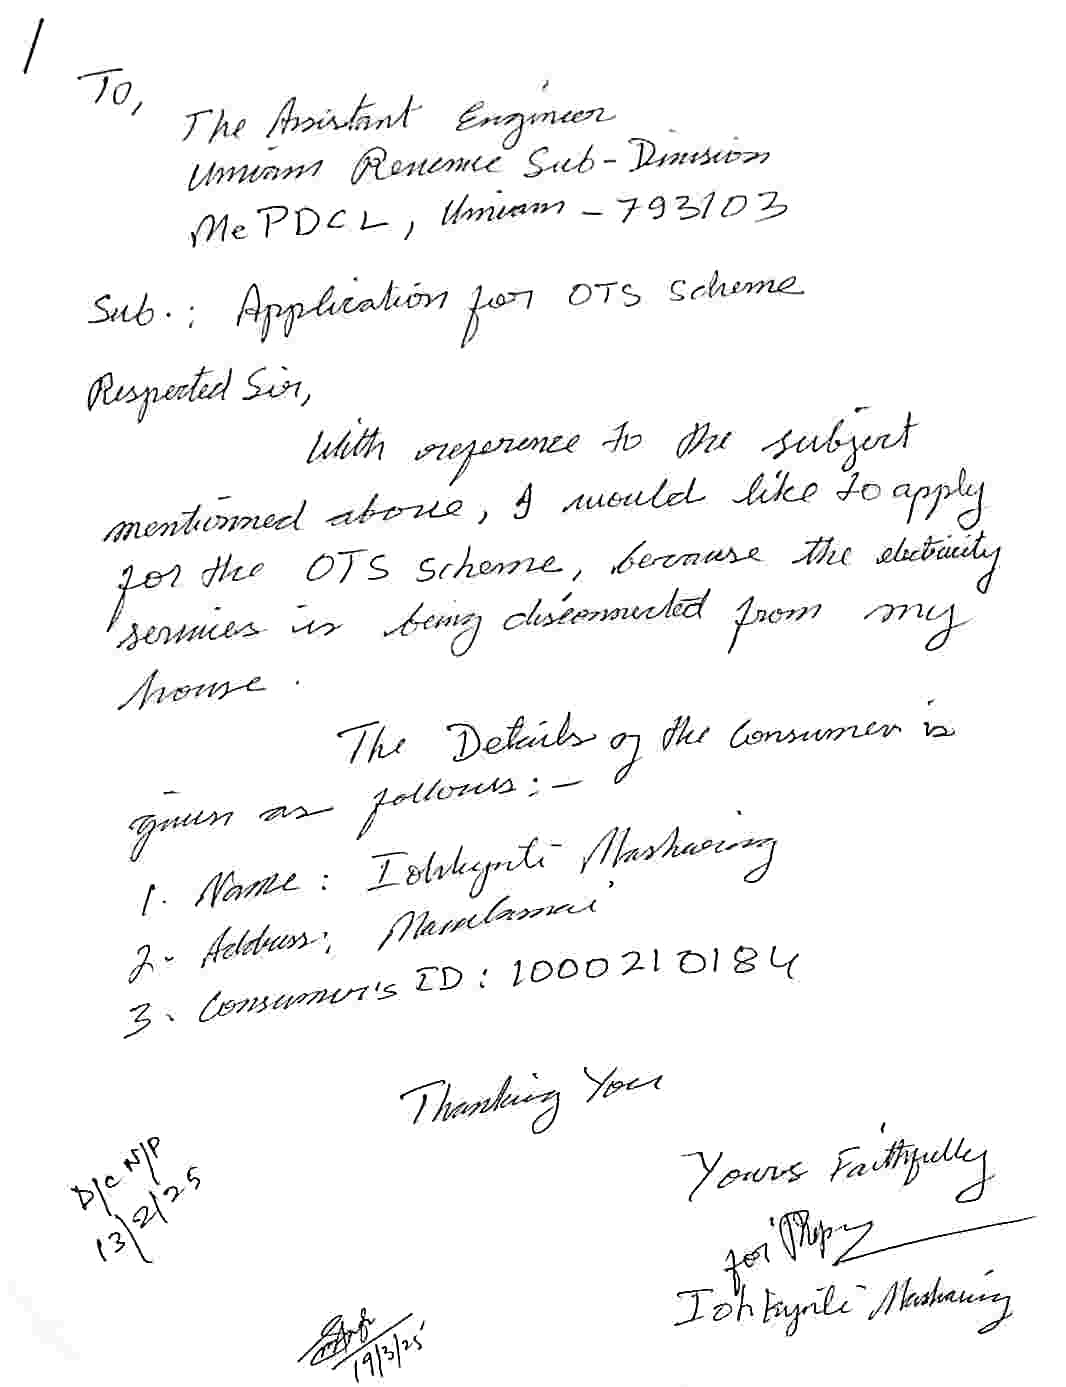 To,
The Assistant Engineer
Umiam Revenue Sub-Division
MePDCL, Umiam - 793103
Sub. : Application for OTS Scheme
Respected Sir,
With reference to the subject
mentionned above, I would like to apply
for the OTS scheme, because the electricity
services is being disconnected from my
house.
The Details of the Consumer is
given as follows : -
1. Name : Iohkynti Masharing
2. Address :
3. Consumer's ID : 1000210184
Thanking You
Yours Faithfully
for
Iohkynti Masharing
D/C N/P
13/2/25
19/3/25